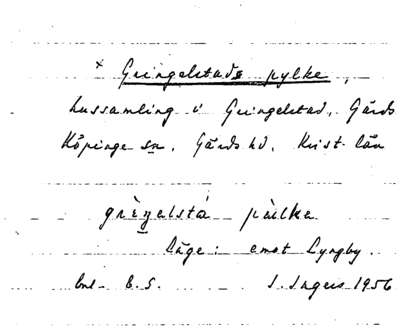 × Gringelstads pylke,
hussamling i Gringelstad, Gärds
Köpinge sn. Gärds hd. Krist. län
grèŋalstá pỳlka
Läge: emot Lyngby.
enl. E. S. I. Ingers 1956